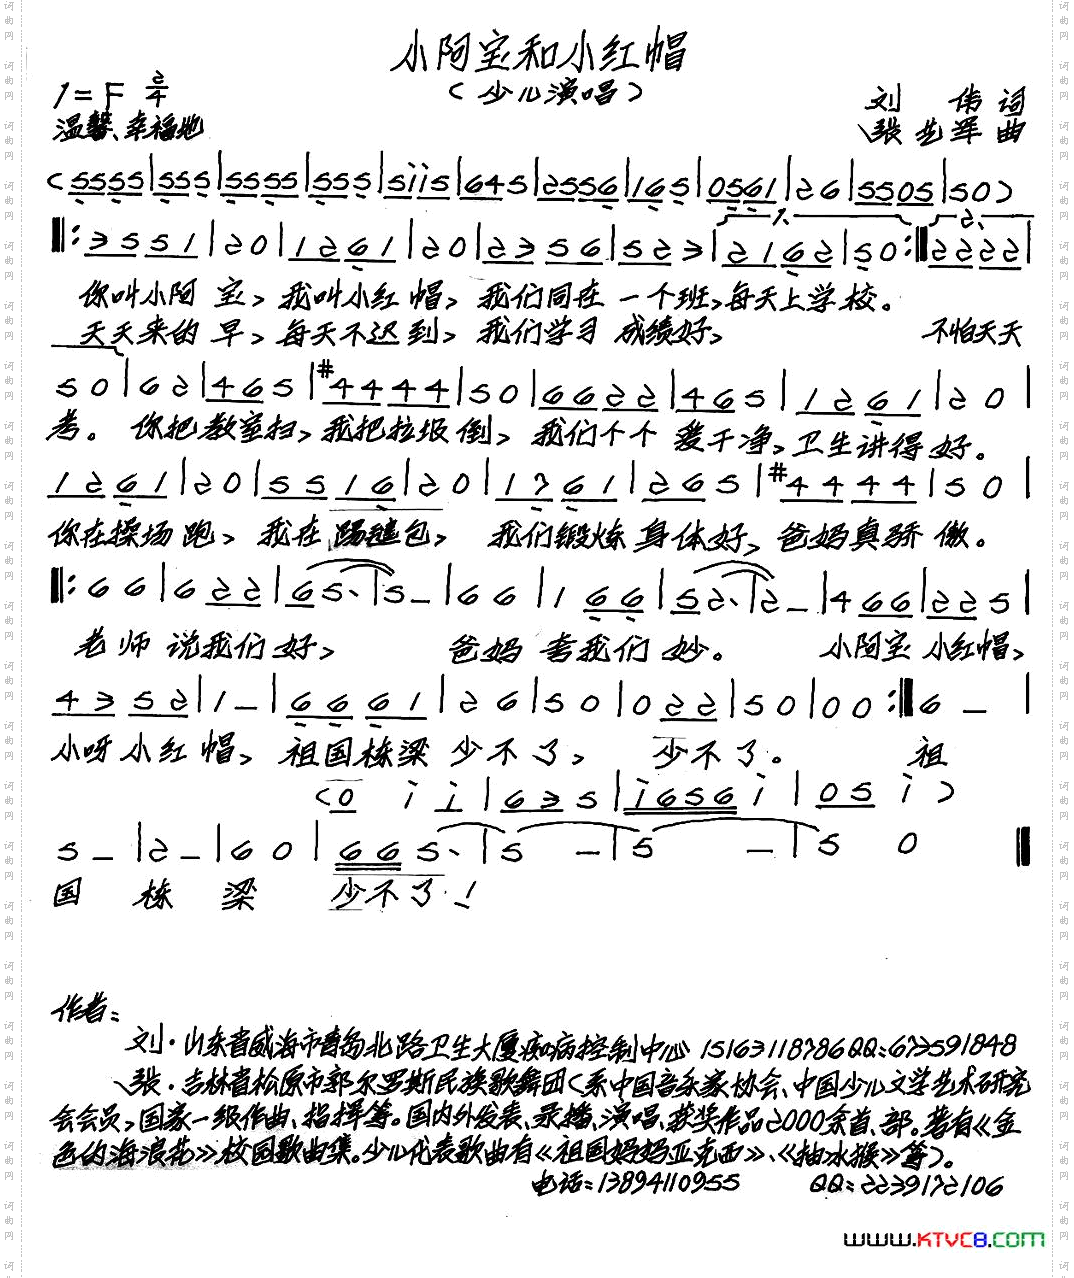 小阿宝和小红帽
(少儿演唱)
1=F 2/4
刘 伟 词
温馨、幸福地
张艺军 曲
(5555|555|5555|555|5i i5|645|2556|165|0561|26|5505|50)
1. 2.
‖:3551|20|1261|20|2356|523|2162|50:‖2222|
你叫小阿宝,我叫小红帽,我们同在一个班,每天上学校。
天天来的早,每天不迟到,我们学习成绩好, 不怕天天
50|62|465|#4444|50|6622|465|1261|20|
考。你把教室扫,我把拉圾倒,我们个个爱干净,卫生讲得好。
1261|20|5516|20|1261|265|#4444|50|
你在操场跑,我在踢毽包,我们锻炼身体好,爸妈真骄傲。
‖:66|622|65·|5-|66|166|52·|2-|466|225|
老师说我们好, 爸妈夸我们妙。 小阿宝小红帽,
4352|1-|6661|26|50|022|50|00:‖6-|
小呀小红帽,祖国栋梁少不了, 少不了。 祖
(0 i i|635|i656i|05i)
5-|2-|60|665·|5-|5-|50‖
国 栋 梁 少不了!
作者:
刘·山东省威海市青岛北路卫生大厦疾病控制中心 15163118786 QQ:673591848
张·吉林省松原市郭尔罗斯民族歌舞团(系中国音乐家协会、中国少儿文学艺术研究
会会员,国家一级作曲、指挥等。国内外发表、录播、演唱、获奖作品2000余首、部。著有《金
色的海浪花》校园歌曲集。少儿代表歌曲有《祖国妈妈亚克西》、《抽水猴》等)。
电话:13894110955 QQ:2239172106
www.KTVC8.com